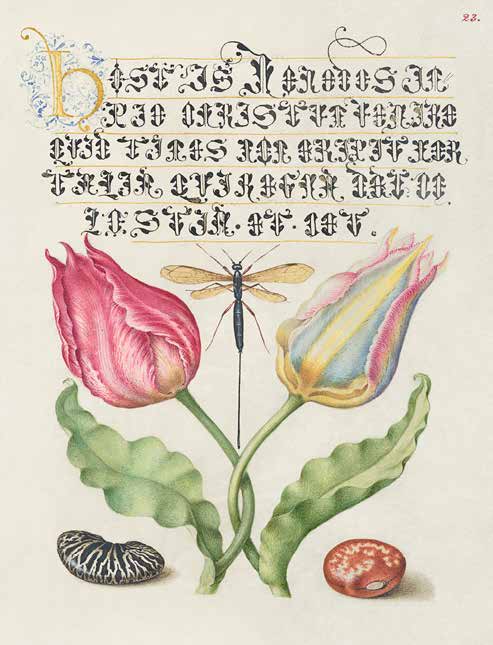 23.
HOSTIS HERODES IM=
PIE CHRISTVM VENIRE
QVID TIMES NON ERIPIT MOR
TALIA QVI REGNA DAT CE,
LESTIA. ET. CET.